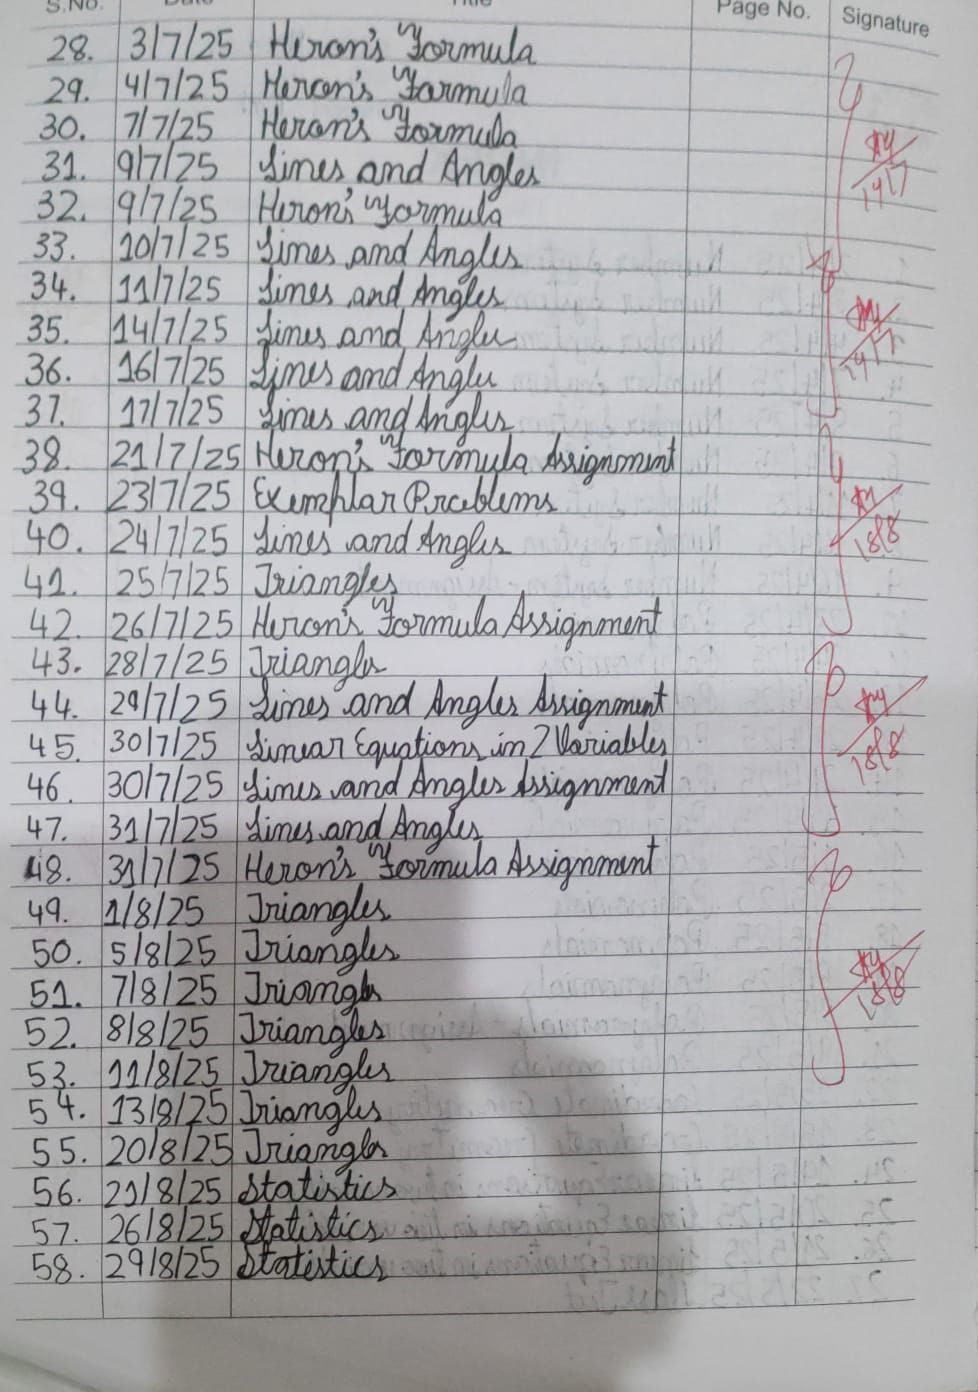 S.No. Date Title Page No. Signature
28. 3/7/25 Heron's Formula
29. 4/7/25 Heron's Formula
30. 7/7/25 Heron's Formula
31. 9/7/25 Lines and Angles
32. 9/7/25 Heron's Formula
33. 10/7/25 Lines and Angles
34. 11/7/25 Lines and Angles
35. 14/7/25 Lines and Angles
36. 16/7/25 Lines and Angles
37. 17/7/25 Lines and Angles
38. 21/7/25 Heron's Formula Assignment
39. 23/7/25 Exemplar Problems
40. 24/7/25 Lines and Angles
41. 25/7/25 Triangles
42. 26/7/25 Heron's Formula Assignment
43. 28/7/25 Triangles
44. 29/7/25 Lines and Angles Assignment
45. 30/7/25 Linear Equations in 2 Variables
46. 30/7/25 Lines and Angles Assignment
47. 31/7/25 Lines and Angles
48. 31/7/25 Heron's Formula Assignment
49. 1/8/25 Triangles
50. 5/8/25 Triangles
51. 7/8/25 Triangles
52. 8/8/25 Triangles
53. 11/8/25 Triangles
54. 13/8/25 Triangles
55. 20/8/25 Triangles
56. 21/8/25 Statistics
57. 26/8/25 Statistics
58. 29/8/25 Statistics